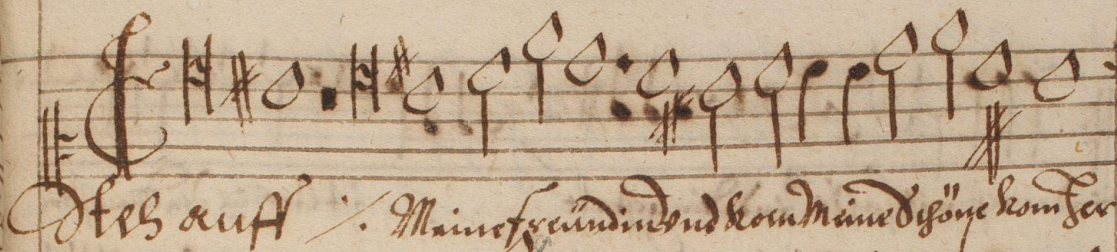 Steh auff ./. Meine freündin und kom Meine Schöne kom her